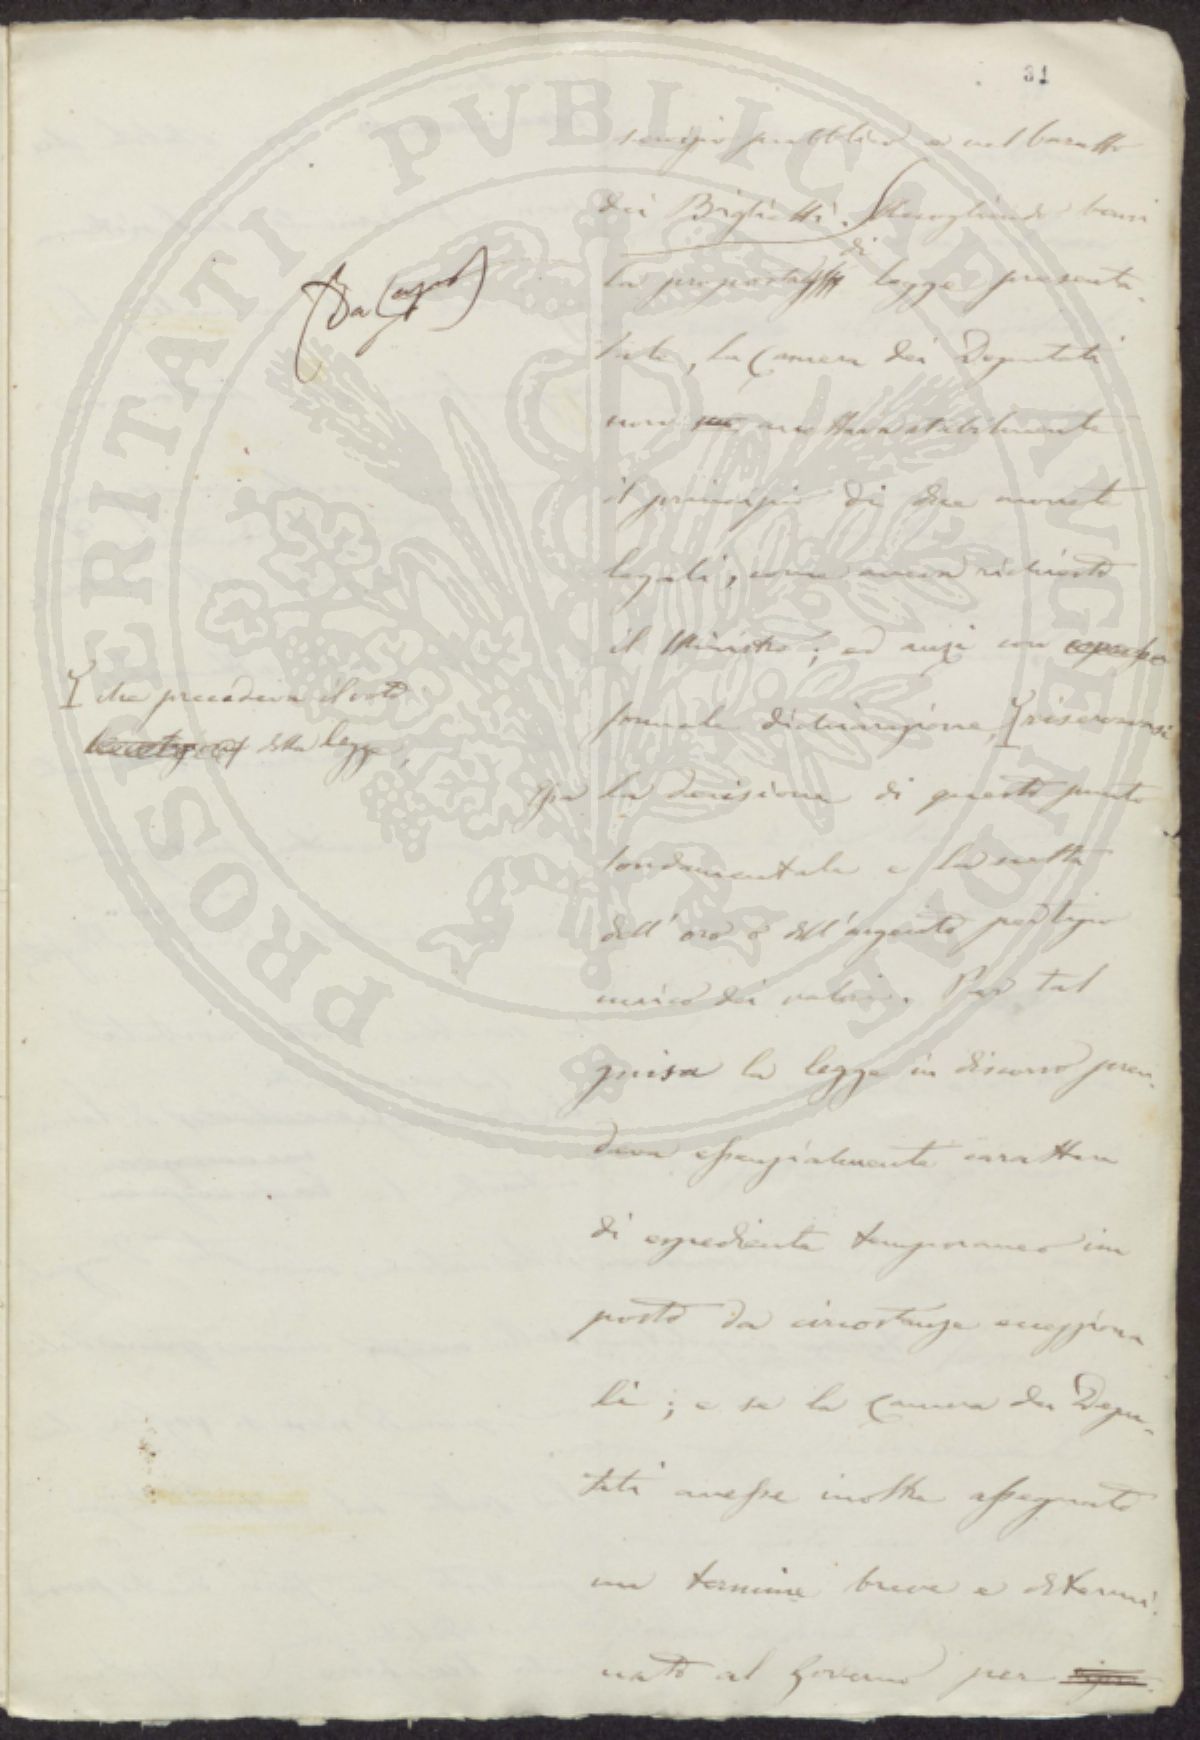 31
servizio pubblico e nel baratto
dei Biglietti. Accogliendo bensi
di
la proposta legge presenta-
tale, la Camera dei Deputati
non accettava stabilmente
il principio di due monete
legali, come aveva richiesto
il Ministro; ed anzi con espressa
formale dichiarazione, riservavasi
la decisione di questo punto
fondamentale e la scelta
dell'oro o dell'argento per tipo
unico dei valori. Per tal
guisa la legge in discorso pren-
deva essenzialmente carattere
di espediente temporaneo im
posto da circostanze ecceziona
li; e se la Camera dei Depu-
tati avesse inoltre assegnato
un termine breve e determi-
nato al Governo per
(Da capo)
che precedeva il voto
della legge,
PROSPERITATI PVBLICAE AVGENDAE